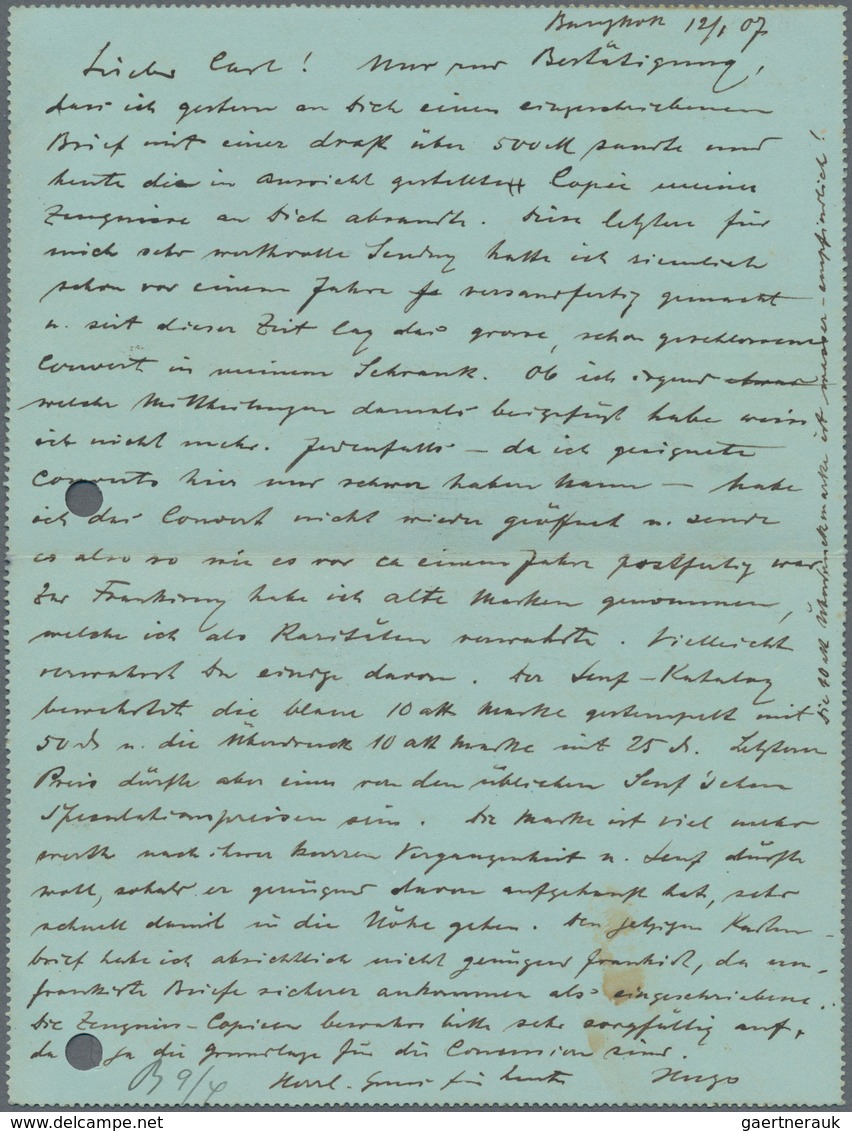 Bangkok 12/1 07
Lieber Carl! Nur zur Bestätigung,
dass ich gestern an Dich einen eingeschriebenen
Brief mit einer draft über 500 M sandte und
heute die in Aussicht gestellte Copie meiner
Zeugnisse an Dich absandte. Diese letztere für
mich sehr werthvolle Sendung hatte ich ziemlich
schon vor einem Jahre versandfertig gemacht
u. seit dieser Zeit lag das grosse, schon geschlossene
Couvert in meinem Schrank. Ob ich irgend etwas
welche Mittheilungen damals beigefügt habe weiss
ich nicht mehr. Jedenfalls – da ich geeignete
Couverts hier nur schwer haben kann – habe
ich das Couvert nicht wieder geöffnet u. sende
es also so wie es vor ca einem Jahre postfertig war
Zur Frankirung habe ich alte Marken genommen,
welche ich als Raritäten verwahrte. Vielleicht
verwahrst Du einige davon. Der Senf-Katalog
bewerthet die blaue 10 att Marke gestempelt mit
50 d u. die Überdruck 10 att Marke mit 25 d. Letzterer
Preis dürfte aber einer von den üblichen Senf'schen
Speculationspreisen sein. Die Marke ist viel mehr
werth nach ihrer kurzen Vergangenheit u. Senf dürfte
wohl, sobald er genügend davon aufgekauft hat, sehr
schnell damit in die Höhe gehen. Den jetzigen Karten-
brief habe ich absichtlich nicht genügend frankirt, da un-
frankirte Briefe sicherer ankommen als eingeschriebene.
Die Zeugniss-Copieen bewahre bitte sehr sorgfältig auf,
da ja die Grundlage für die Concession sind.
Herzl. Gruss für heute Hugo
B 9/4
Die 10 att Überdruckmarke ist wasser-empfindlich!
gaertnerauk